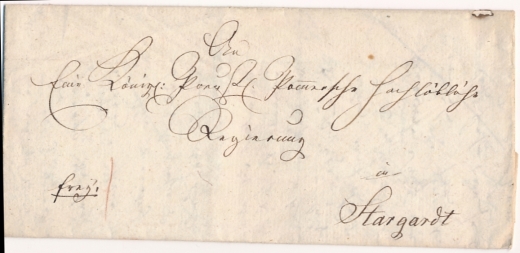 An
Eine Königl: Preuß: Pommersche Hochlöbliche
Regierung
in
frey:
Stargardt